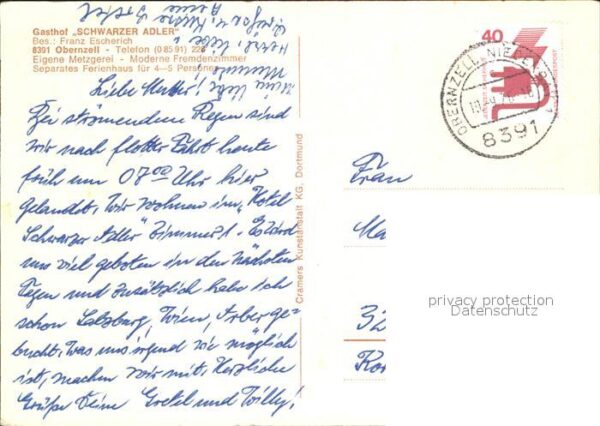 Gasthof „SCHWARZER ADLER"
Bes.: Franz Escherich
8391 Obernzell - Telefon (0 85 91) 228
Eigene Metzgerei - Moderne Fremdenzimmer
Separates Ferienhaus für 4—5 Personen
Liebe Mutter!
Bei strömendem Regen sind
wir nach flotter Fahrt heute
früh um 07⁰⁰ Uhr hier
gelandet. Wir wohnen im „Hotel
Schwarzer Adler" Zimmer 1. Es wird
uns viel geboten in den nächsten
Tagen und zusätzlich habe ich
schon Salzburg, Wien, Arber ge-
bucht. Was uns irgend wie möglich
ist, machen wir mit. Herzliche
Grüße Deine Gretel und Willy!
Cramers Kunstanstalt KG, Dortmund
40
OBERNZELL, NIEDERBAY
8391
Frau
Ma
32
Kor
privacy protection
Datenschutz